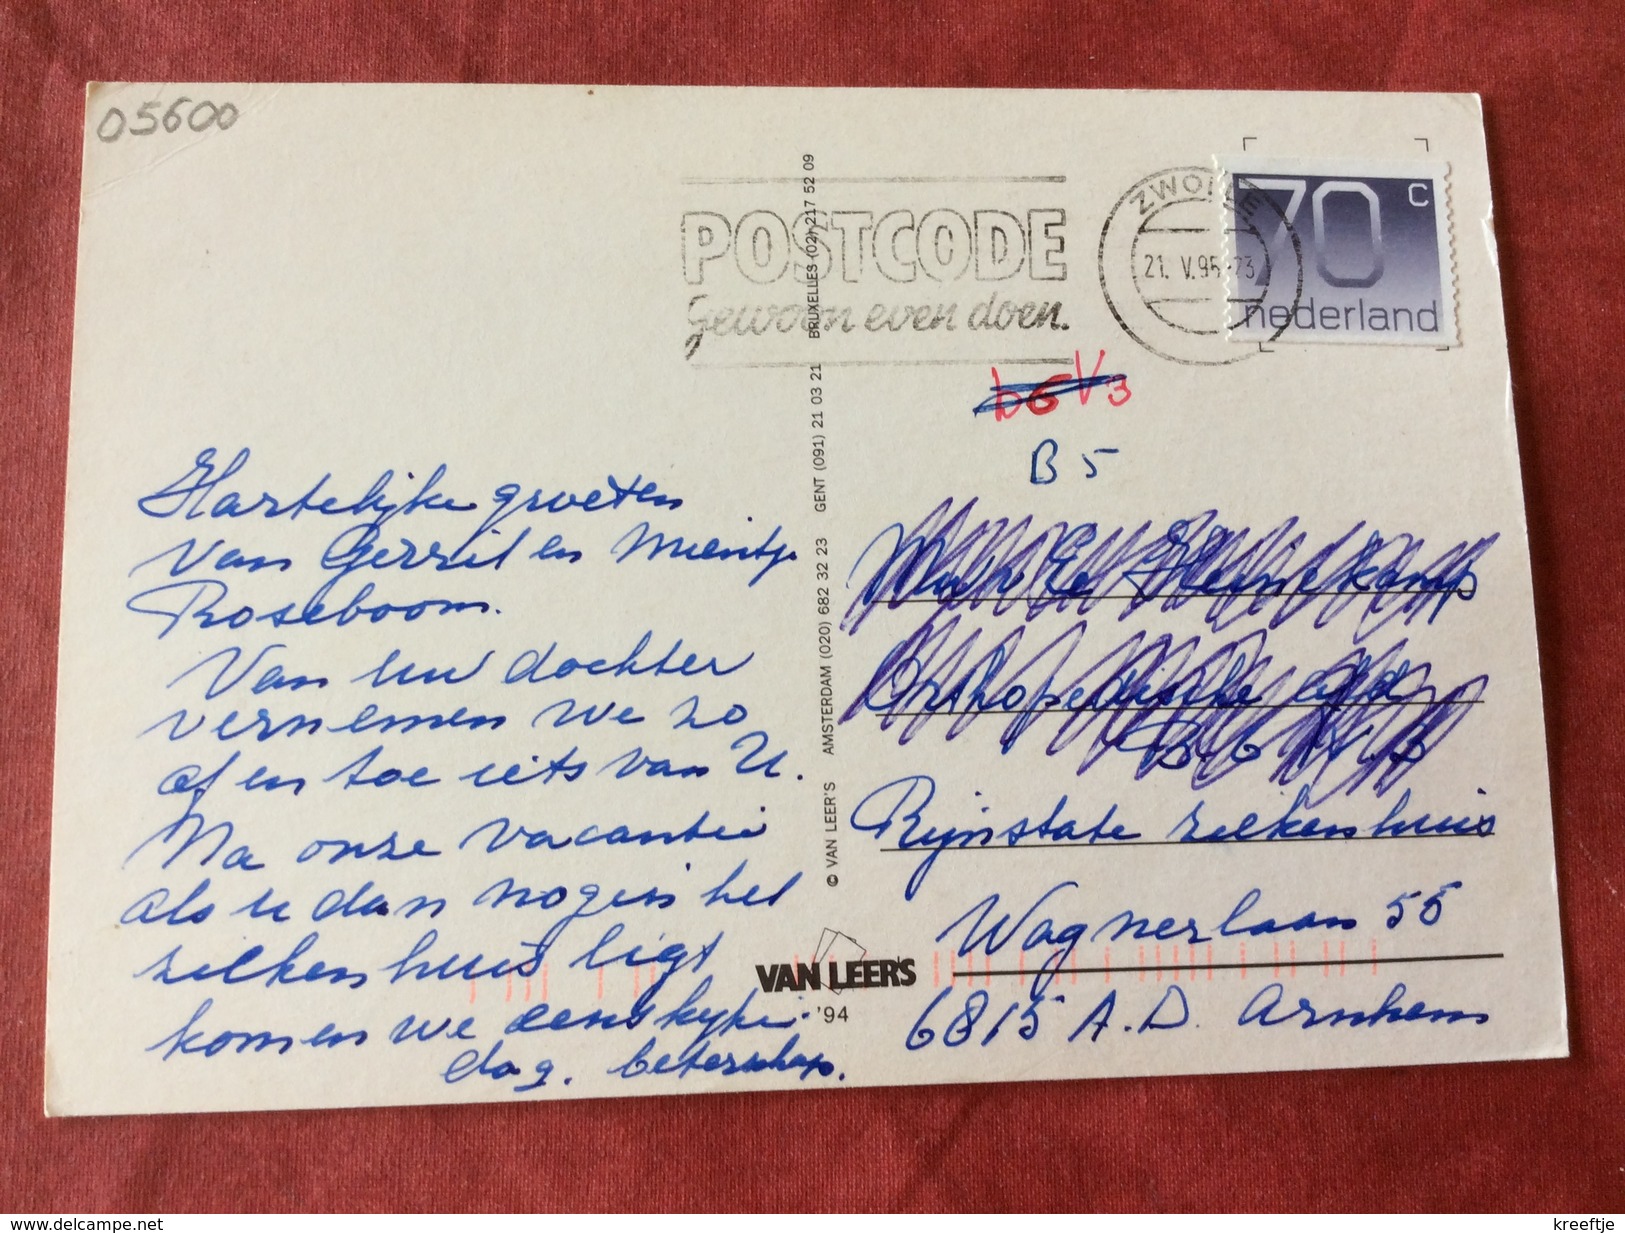 05600
POSTCODE
gewoon even doen.
ZWOLLE
21. V.95-23
70 c
nederland
V3
B 5
Hartelijke groeten
van Gerrit en Mientje
Roseboom.
Van uw dochter
vernemen we zo
af en toe iets van U.
Na onze vacantie
als u dan nog in het
ziekenhuis ligt
komen we eens kijken.
dag. beterschap.
© VAN LEER'S AMSTERDAM (020) 682 32 23 GENT (091) 21 03 21 BRUXELLES (02) 217 52 09
VAN LEER'S
'94
Orthopedische afd
B 6
Rijnstate ziekenhuis
Wagnerlaan 55
6815 A.D. Arnhem
www.delcampe.net
kreeftje